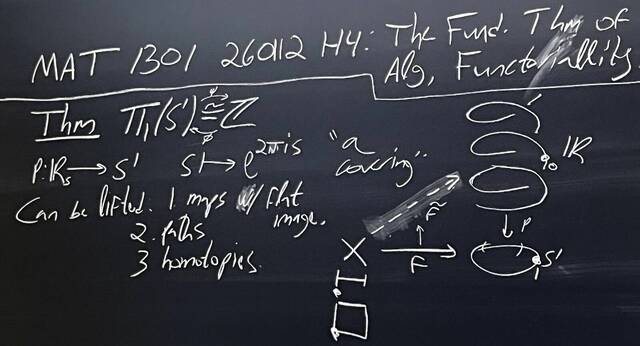 MAT 1301 260112 H4: The Fund. Thm of
Alg, Functoriallity.
Thm π₁(S¹) ≅ Z
ψ
φ
p: ℝₛ → S¹ s ↦ e^{2πis} "a
covering".
Can be lifted. 1. maps w/ flat
image.
2. paths
3 homotopies.
IR
0
p
F̃
F
S¹
1
X
I